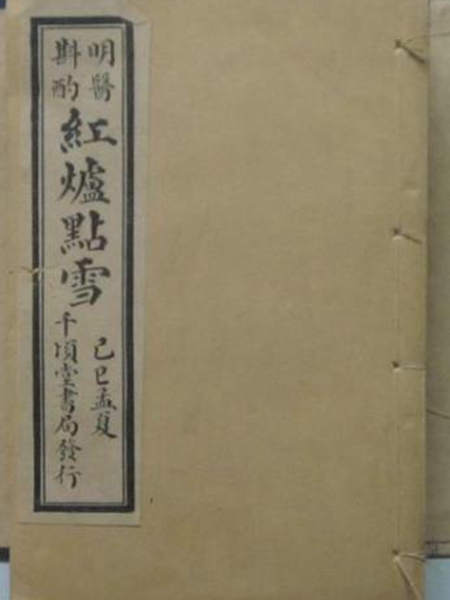 明醫
斟酌
紅爐點雪
己巳孟夏
千頃堂書局發行